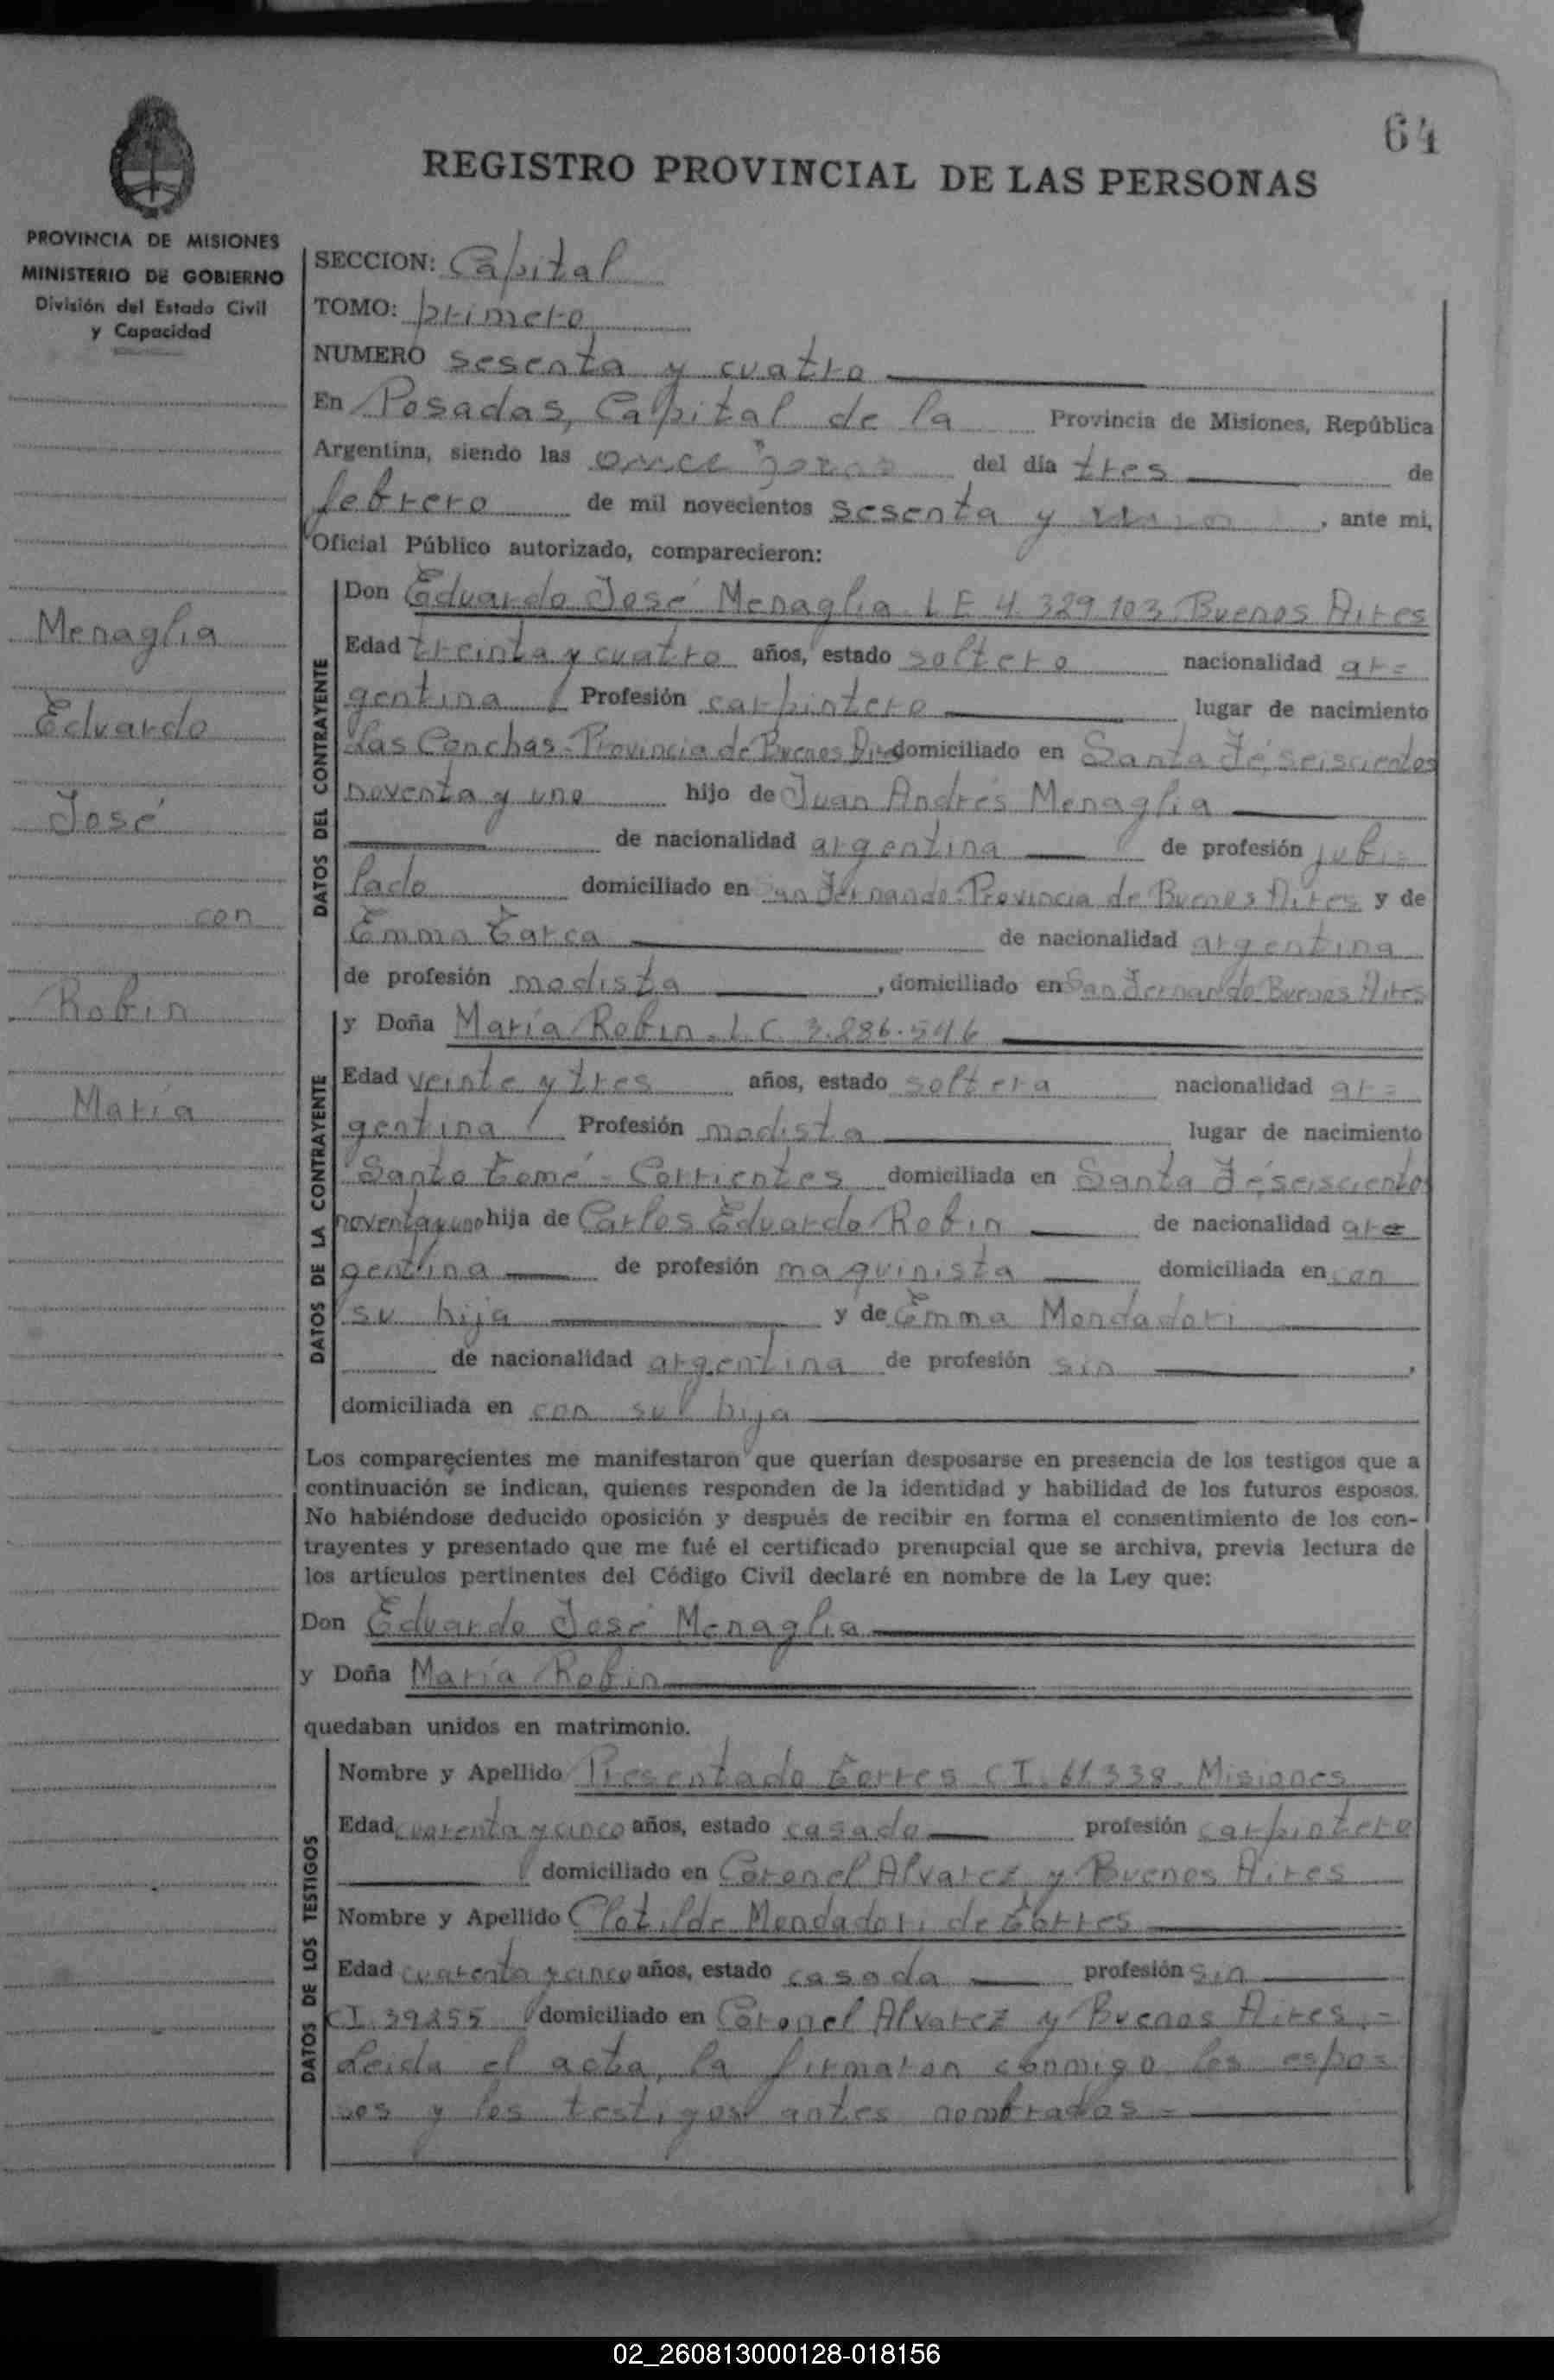 64
REGISTRO PROVINCIAL DE LAS PERSONAS
PROVINCIA DE MISIONES
MINISTERIO DE GOBIERNO
División del Estado Civil
y Capacidad
Menaglia
Eduardo
José
con
Robin
María
SECCION: Capital
TOMO: primero
NUMERO sesenta y cuatro
En Posadas, Capital de la Provincia de Misiones, República
Argentina, siendo las once horas del día tres de
febrero de mil novecientos sesenta y uno, ante mi,
Oficial Público autorizado, comparecieron:
DATOS DEL CONTRAYENTE
Don Eduardo José Menaglia L E 4.329.103. Buenos Aires
Edad treinta y cuatro años, estado soltero nacionalidad ar=
gentina Profesión carpintero lugar de nacimiento
Las Conchas-Provincia de Buenos Aires domiciliado en Santa Fé seiscientos
noventa y uno hijo de Juan Andrés Menaglia
de nacionalidad argentina de profesión jubi=
lado domiciliado en San Fernando-Provincia de Buenos Aires y de
Emma Tarca de nacionalidad argentina
de profesión modista, domiciliado en San Fernando Buenos Aires
DATOS DE LA CONTRAYENTE
y Doña María Robin. L.C. 3.286.546
Edad veinte y tres años, estado soltera nacionalidad ar=
gentina Profesión modista lugar de nacimiento
Santo Tomé-Corrientes domiciliada en Santa Fé seiscientos
noventa y uno hija de Carlos Eduardo Robin de nacionalidad ar=
gentina de profesión maquinista domiciliada en con
su hija y de Emma Mondadori
de nacionalidad argentina de profesión sin,
domiciliada en con su hija
Los comparecientes me manifestaron que querían desposarse en presencia de los testigos que a
continuación se indican, quienes responden de la identidad y habilidad de los futuros esposos.
No habiéndose deducido oposición y después de recibir en forma el consentimiento de los con-
trayentes y presentado que me fué el certificado prenupcial que se archiva, previa lectura de
los artículos pertinentes del Código Civil declaré en nombre de la Ley que:
Don Eduardo José Menaglia
y Doña María Robin
quedaban unidos en matrimonio.
DATOS DE LOS TESTIGOS
Nombre y Apellido Presentado Torres C I. 61.338. Misiones
Edad cuarenta y cinco años, estado casado profesión carpintero
domiciliado en Coronel Alvarez y Buenos Aires
Nombre y Apellido Clotilde Mondadori de Torres
Edad cuarenta y cinco años, estado casada profesión sin
CI.39255 domiciliado en Coronel Alvarez y Buenos Aires.=
Leída el acta, la firmaron conmigo los espo=
sos y los testigos antes nombrados=
02_260813000128-018156